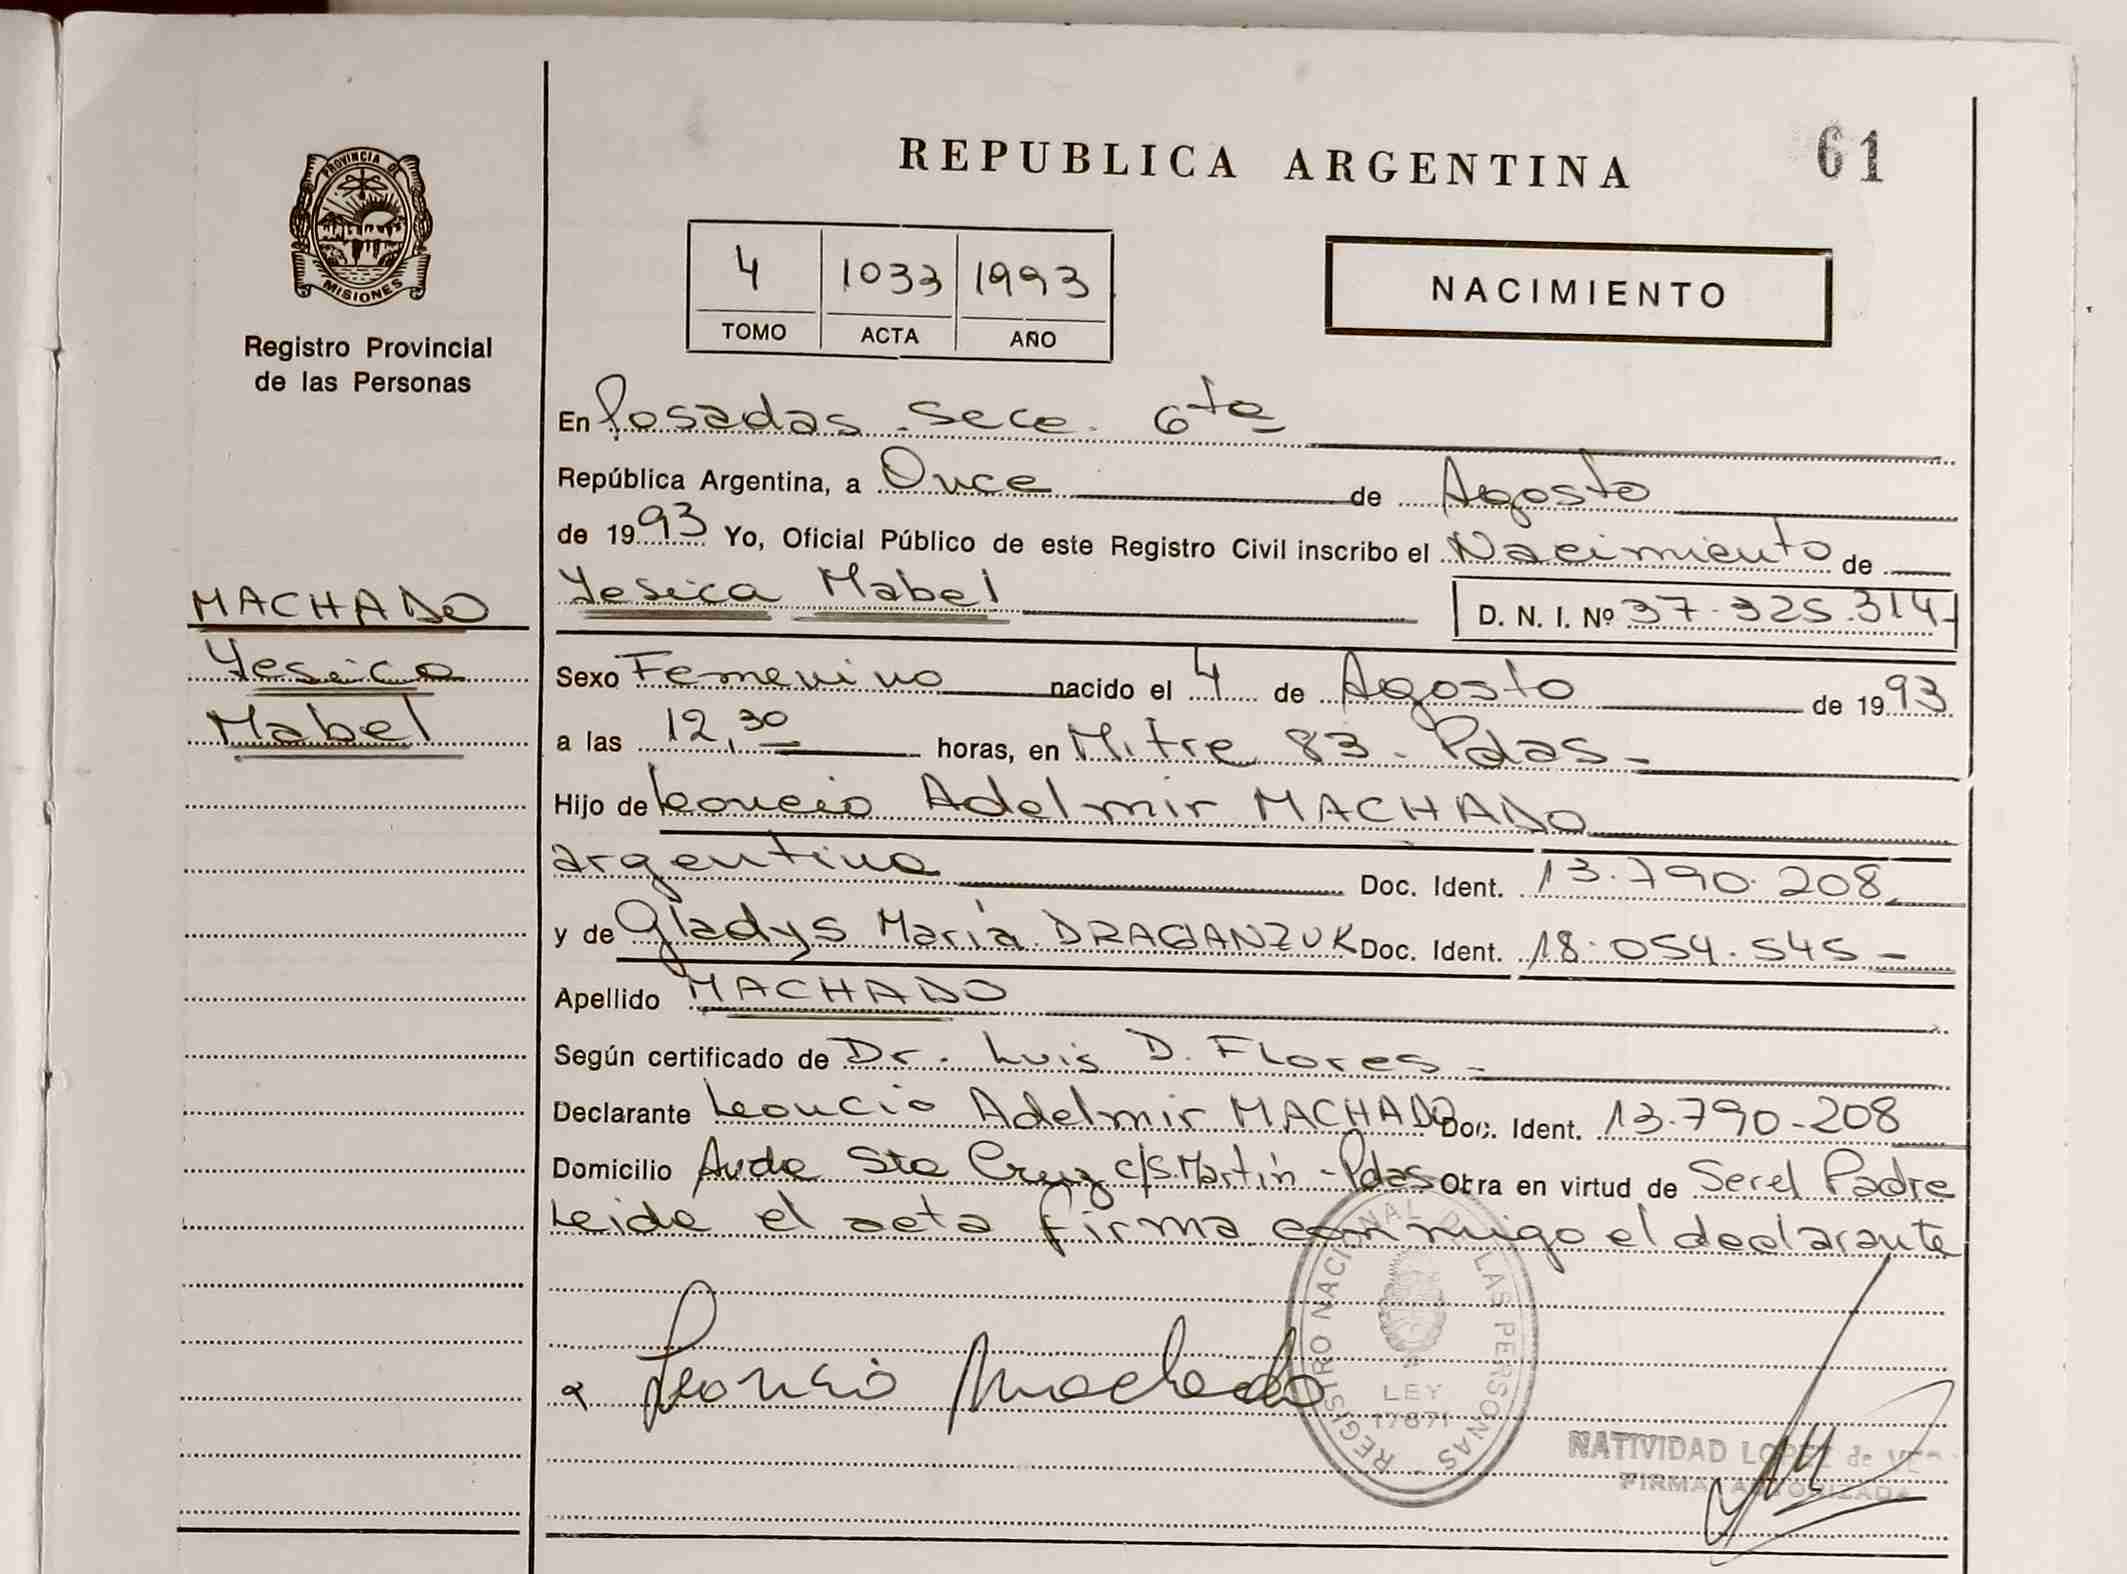 PROVINCIA DE
MISIONES
Registro Provincial
de las Personas
MACHADO
Yesica
Mabel
REPUBLICA ARGENTINA
61
4 1033 1993
TOMO ACTA AÑO
NACIMIENTO
En Posadas Secc. 6ta
República Argentina, a Once de Agosto
de 1993 Yo, Oficial Público de este Registro Civil inscribo el Nacimiento de
Yesica Mabel D. N. I. Nº 37.325.314
Sexo Femenino nacido el 4 de Agosto de 1993
a las 12,30 horas, en Mitre 83 - Pdas -
Hijo de Leoncio Adelmir MACHADO
argentino Doc. Ident. 13.790.208
y de Gladys María DRAGANZUK Doc. Ident. 18.054.545 -
Apellido MACHADO
Según certificado de Dr. Luis D. Flores -
Declarante Leoncio Adelmir MACHADO Doc. Ident. 13.790.208
Domicilio Avda Sta Cruz c/S. Martín - Pdas Obra en virtud de Ser el Padre
Leida el acta firma conmigo el declarante
Leoncio Machado
REGISTRO NACIONAL DE LAS PERSONAS
LEY
17671
NATIVIDAD LOPEZ de
FIRMA AUTORIZADA